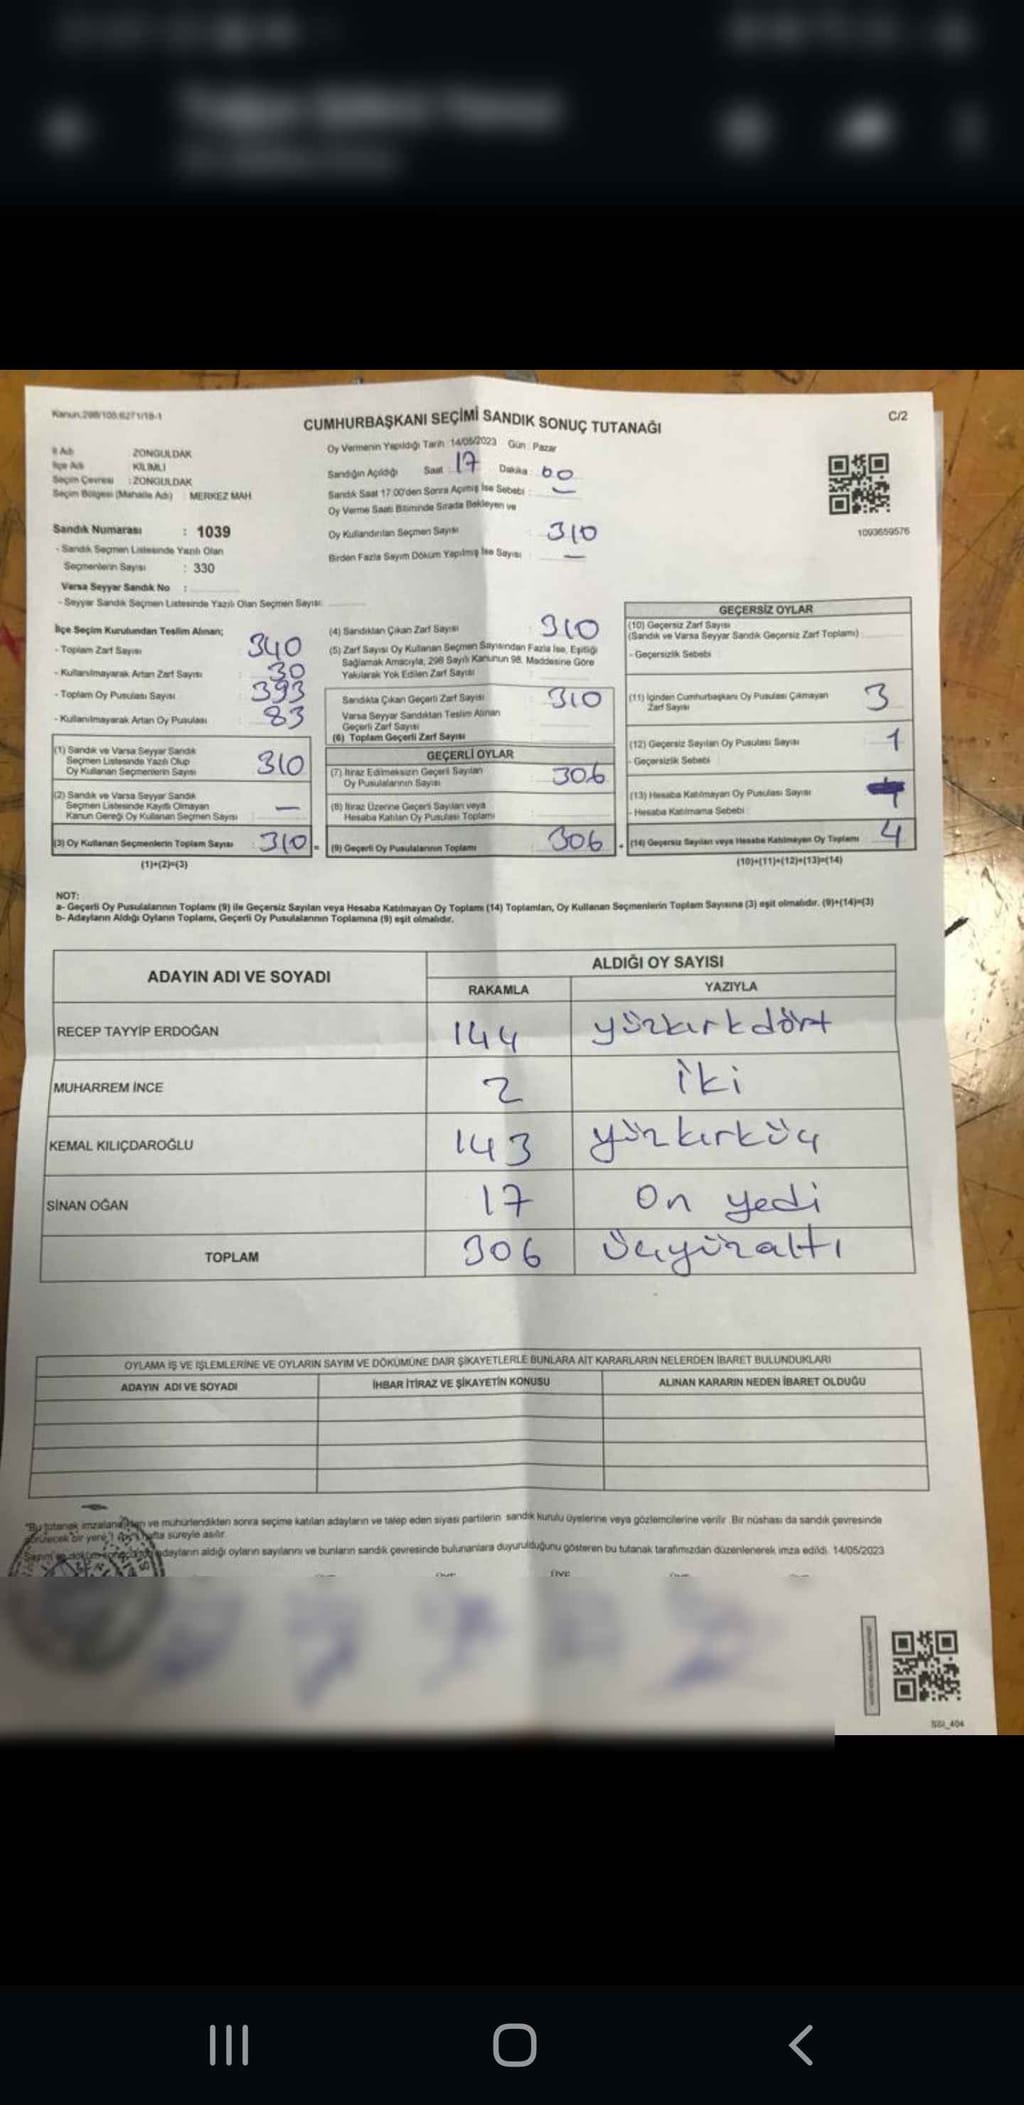 Kanun.298/105.6271/18-1
C/2
CUMHURBAŞKANI SEÇİMİ SANDIK SONUÇ TUTANAĞI
İl Adı : ZONGULDAK
İlçe Adı : KİLİMLİ
Seçim Çevresi : ZONGULDAK
Seçim Bölgesi (Mahalle Adı) : MERKEZ MAH
Sandık Numarası : 1039
- Sandık Seçmen Listesinde Yazılı Olan
Seçmenlerin Sayısı : 330
Varsa Seyyar Sandık No :
- Seyyar Sandık Seçmen Listesinde Yazılı Olan Seçmen Sayısı:
Oy Vermenin Yapıldığı Tarih : 14/05/2023 Gün : Pazar
Sandığın Açıldığı Saat : 17 Dakika : 00
Sandık Saat 17:00'den Sonra Açılmış İse Sebebi : —
Oy Verme Saati Bitiminde Sırada Bekleyen ve
Oy Kullandırılan Seçmen Sayısı : 310
Birden Fazla Sayım Döküm Yapılmış İse Sayısı : —
1093659576
İlçe Seçim Kurulundan Teslim Alınan;
- Toplam Zarf Sayısı : 340
- Kullanılmayarak Artan Zarf Sayısı : 30
- Toplam Oy Pusulası Sayısı : 393
- Kullanılmayarak Artan Oy Pusulası : 83
(1) Sandık ve Varsa Seyyar Sandık
Seçmen Listesinde Yazılı Olup
Oy Kullanan Seçmenlerin Sayısı : 310
(2) Sandık ve Varsa Seyyar Sandık
Seçmen Listesinde Kayıtlı Olmayan
Kanun Gereği Oy Kullanan Seçmen Sayısı : —
(3) Oy Kullanan Seçmenlerin Toplam Sayısı : 310 =
(1)+(2)=(3)
(4) Sandıktan Çıkan Zarf Sayısı : 310
(5) Zarf Sayısı Oy Kullanan Seçmen Sayısından Fazla İse, Eşitliği
Sağlamak Amacıyla, 298 Sayılı Kanunun 98. Maddesine Göre
Yakılarak Yok Edilen Zarf Sayısı :
Sandıkta Çıkan Geçerli Zarf Sayısı : 310
Varsa Seyyar Sandıktan Teslim Alınan
Geçerli Zarf Sayısı
(6) Toplam Geçerli Zarf Sayısı
GEÇERLİ OYLAR
(7) İtiraz Edilmeksizin Geçerli Sayılan
Oy Pusulalarının Sayısı : 306
(8) İtiraz Üzerine Geçerli Sayılan veya
Hesaba Katılan Oy Pusulası Toplamı :
(9) Geçerli Oy Pusulalarının Toplamı : 306 +
GEÇERSİZ OYLAR
(10) Geçersiz Zarf Sayısı
(Sandık ve Varsa Seyyar Sandık Geçersiz Zarf Toplamı) :
- Geçersizlik Sebebi :
(11) İçinden Cumhurbaşkanı Oy Pusulası Çıkmayan
Zarf Sayısı : 3
(12) Geçersiz Sayılan Oy Pusulası Sayısı : 1
- Geçersizlik Sebebi :
(13) Hesaba Katılmayan Oy Pusulası Sayısı
- Hesaba Katılmama Sebebi :
(14) Geçersiz Sayılan veya Hesaba Katılmayan Oy Toplamı : 4
(10)+(11)+(12)+(13)=(14)
NOT:
a- Geçerli Oy Pusulalarının Toplamı (9) ile Geçersiz Sayılan veya Hesaba Katılmayan Oy Toplamı (14) Toplamları, Oy Kullanan Seçmenlerin Toplam Sayısına (3) eşit olmalıdır. (9)+(14)=(3)
b- Adayların Aldığı Oyların Toplamı, Geçerli Oy Pusulalarının Toplamına (9) eşit olmalıdır.
ADAYIN ADI VE SOYADI
ALDIĞI OY SAYISI
RAKAMLA YAZIYLA
RECEP TAYYİP ERDOĞAN 144 yüzkırkdört
MUHARREM İNCE 2 iki
KEMAL KILIÇDAROĞLU 143 yüzkırküç
SİNAN OĞAN 17 On yedi
TOPLAM 306 üçyüzaltı
OYLAMA İŞ VE İŞLEMLERİNE VE OYLARIN SAYIM VE DÖKÜMÜNE DAİR ŞİKAYETLERLE BUNLARA AİT KARARLARIN NELERDEN İBARET BULUNDUKLARI
ADAYIN ADI VE SOYADI İHBAR İTİRAZ VE ŞİKAYETİN KONUSU ALINAN KARARIN NEDEN İBARET OLDUĞU
"Bu tutanak imzalandıktan ve mühürlendikten sonra seçime katılan adayların ve talep eden siyasi partilerin sandık kurulu üyelerine veya gözlemcilerine verilir. Bir nüshası da sandık çevresinde
görülecek bir yere hafta süreyle asılır.
adayların aldığı oyların sayılarını ve bunların sandık çevresinde bulunanlara duyurulduğunu gösteren bu tutanak tarafımızdan düzenlenerek imza edildi. 14/05/2023
SSI_404